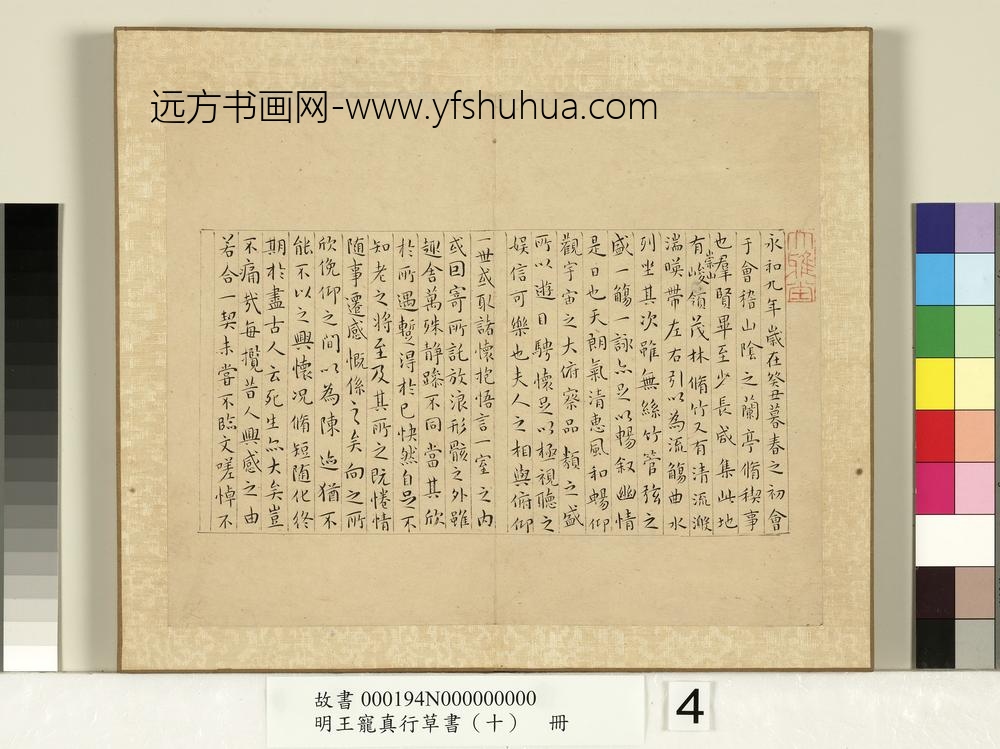 远方书画网-www.yfshuhua.com
永和九年歲在癸丑暮春之初會
于會稽山陰之蘭亭脩稧事
也羣賢畢至少長咸集此地
有崇山峻領茂林脩竹又有清流激
湍暎帶左右引以為流觴曲水
列坐其次雖無絲竹管弦之
盛一觴一詠亦足以暢叙幽情
是日也天朗氣清惠風和暢仰
觀宇宙之大俯察品類之盛
所以遊目騁懷足以極視聽之
娛信可樂也夫人之相與俯仰
一世或取諸懷抱悟言一室之內
或因寄所託放浪形骸之外雖
趣舍萬殊静躁不同當其欣
於所遇蹔得於己快然自足不
知老之將至及其所之既惓情
随事遷感慨係之矣向之所
欣俛仰之間以為陳迹猶不
能不以之興懷况脩短随化終
期於盡古人云死生亦大矣豈
不痛哉每攬昔人興感之由
若合一契未嘗不臨文嗟悼不
大雅室
故書 000194N000000000
明王寵真行草書（十） 冊
4